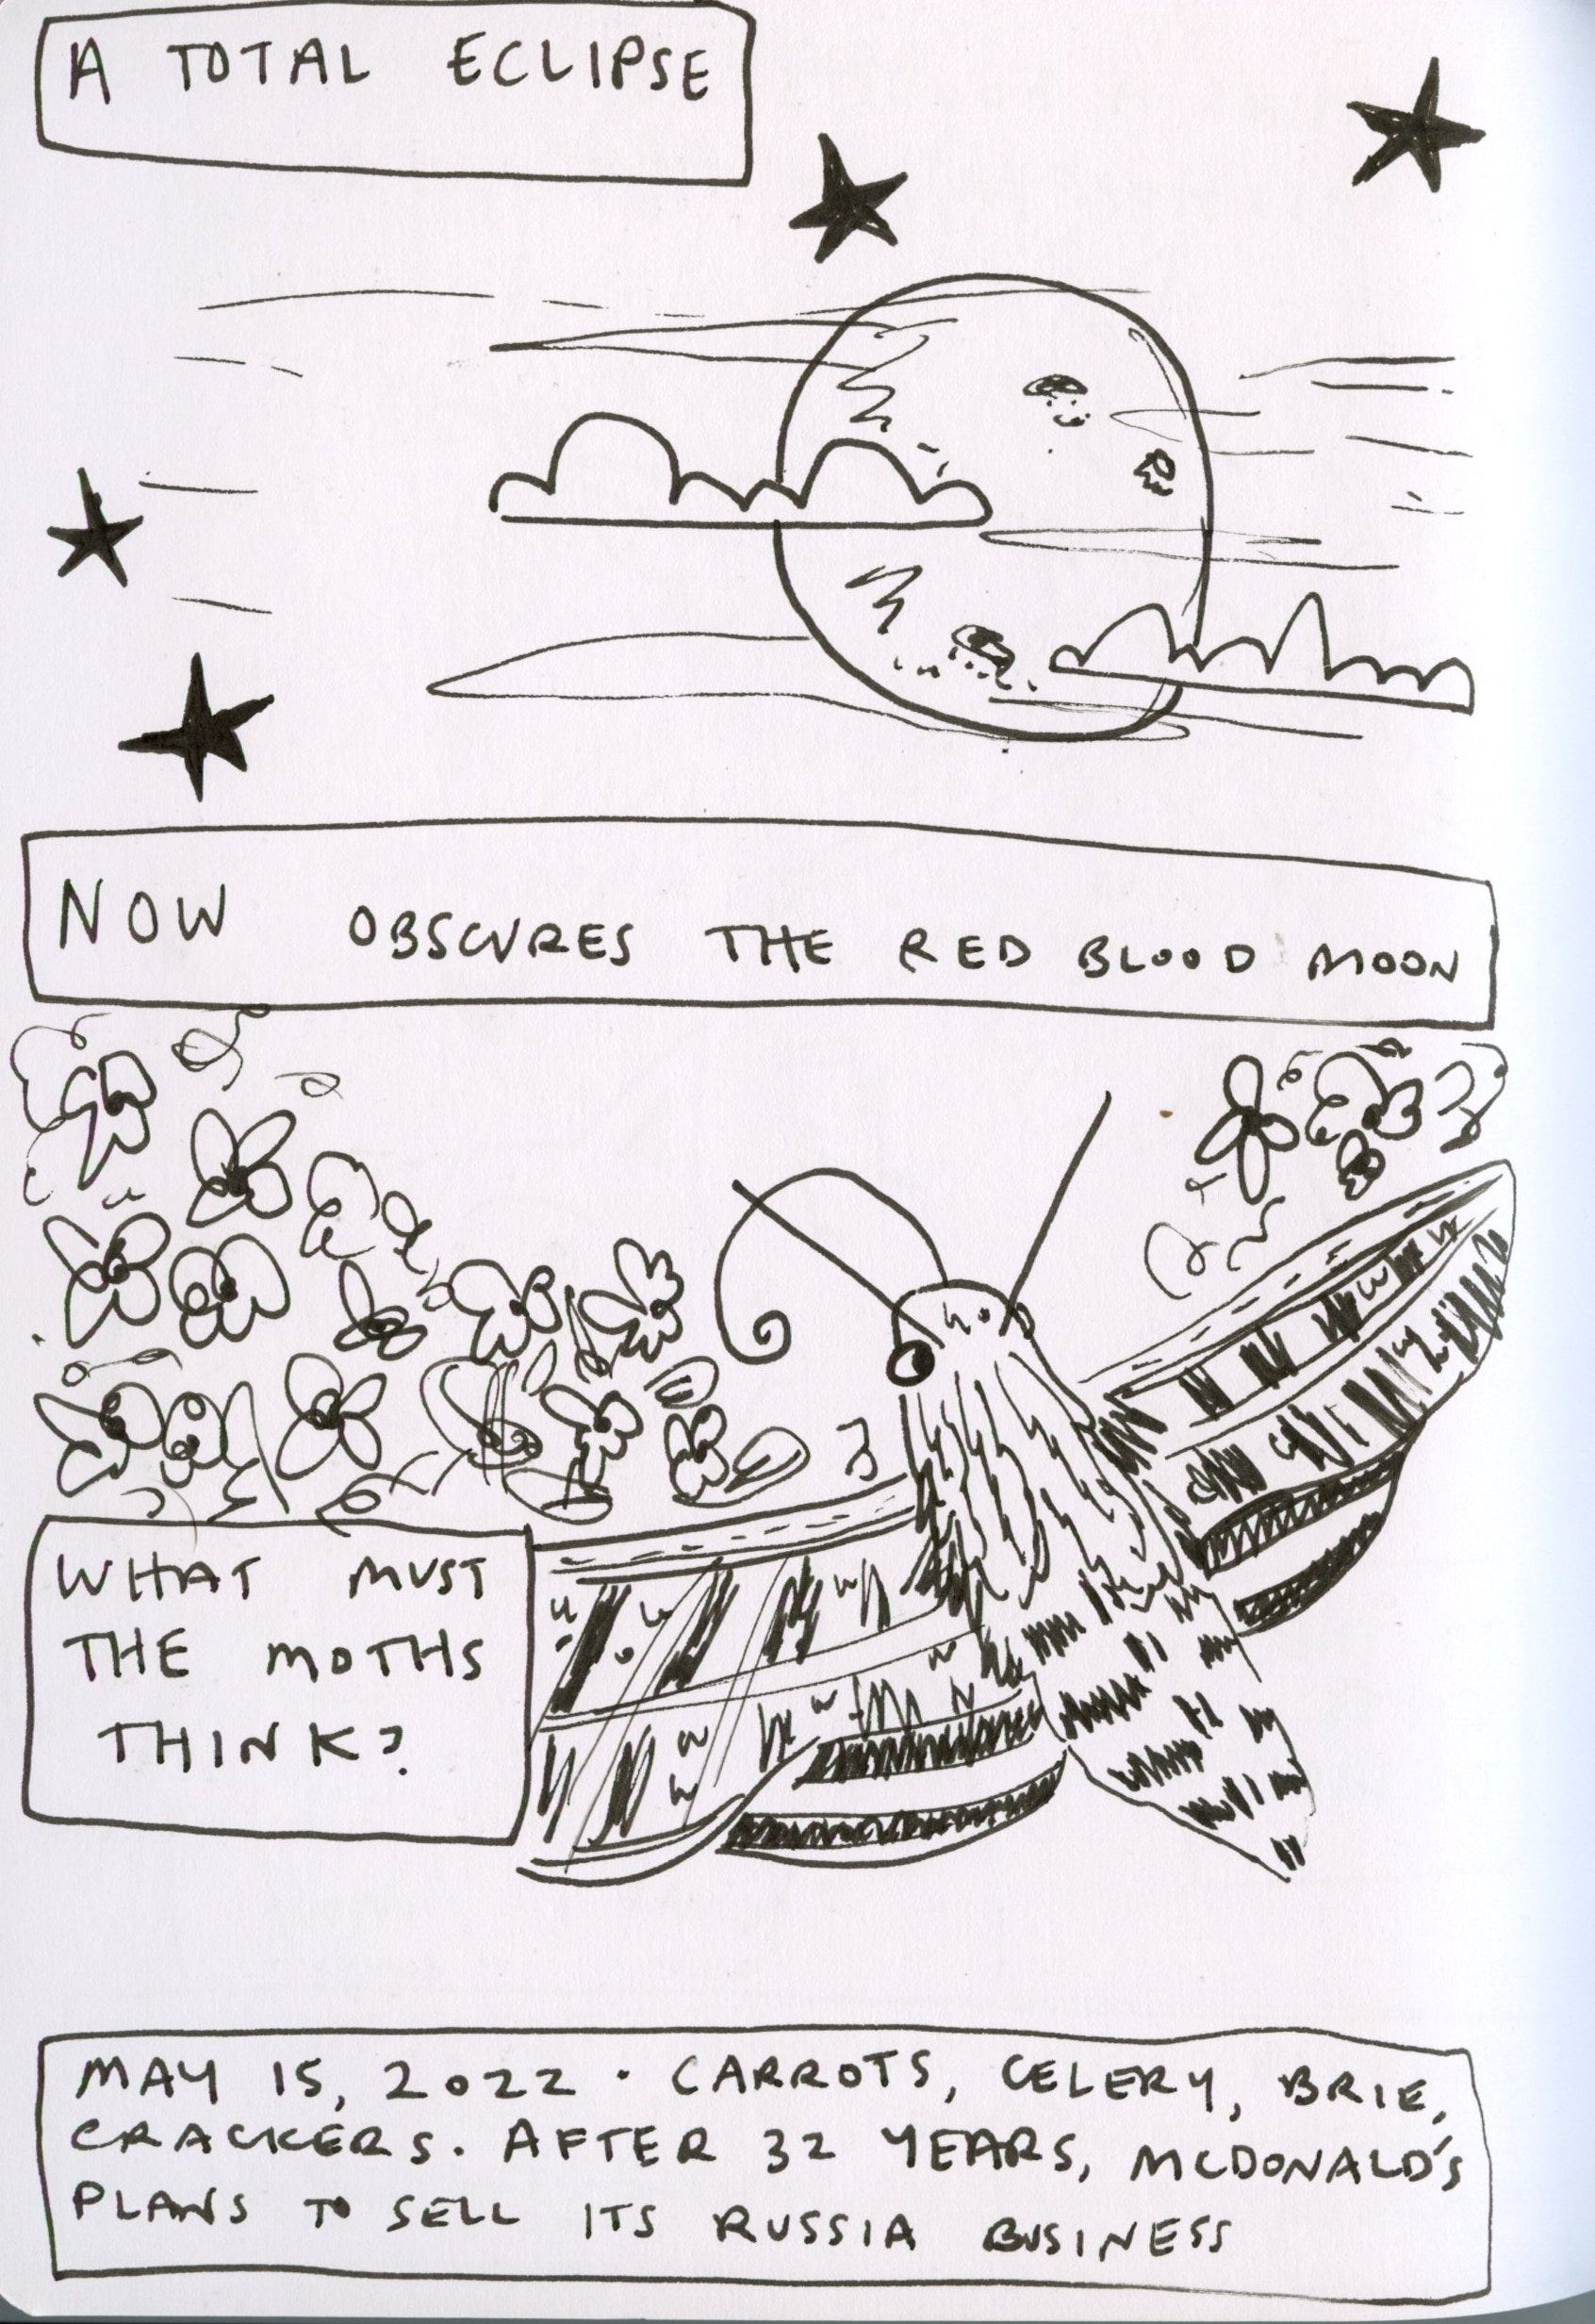 A TOTAL ECLIPSE
NOW OBSCURES THE RED BLOOD MOON
WHAT MUST
THE MOTHS
THINK?
MAY 15, 2022 · CARROTS, CELERY, BRIE,
CRACKERS. AFTER 32 YEARS, MCDONALD'S
PLANS TO SELL ITS RUSSIA BUSINESS